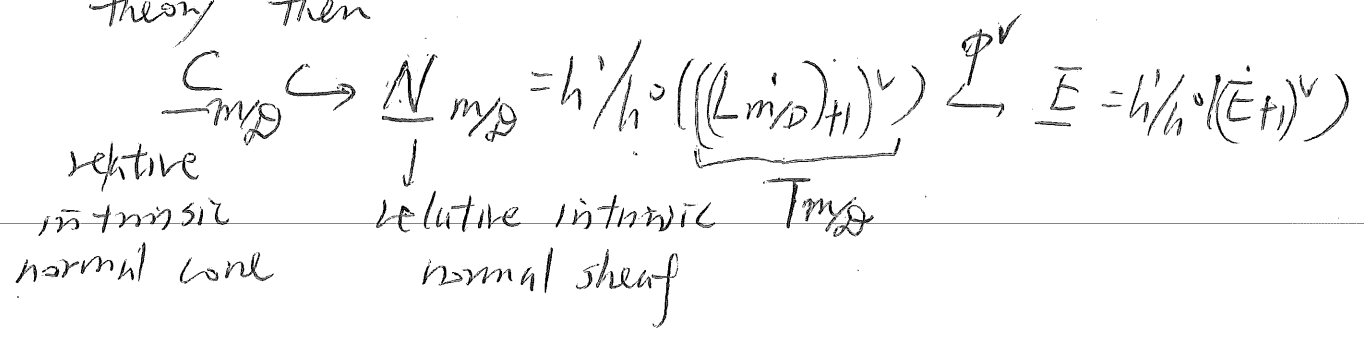 theory then
C_{m/D} ↪ N_{m/D} = h¹/h⁰(((L^•_{m/D})_{+1})^∨) \xrightarrow{φ^∨} E = h¹/h⁰((E^•_{+1})^∨)
T_{m/D}
relative intrinsic normal cone
relative intrinsic normal sheaf